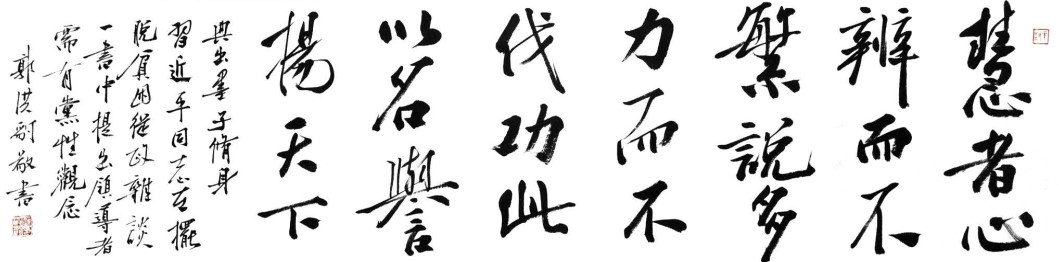 慧者心
辨而不
繁說多
力而不
伐功此
以名譽
揚天下
典出墨子脩身
習近平同志在擺
脱貧困從政雜談
一書中提出領導者
需有黨性觀念
郭洪
敬書